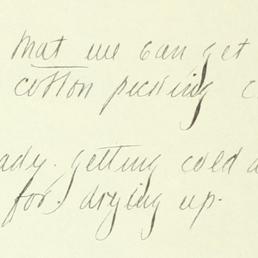 that we can get
cotton picking c
ady. getting cold a
for. drying up.